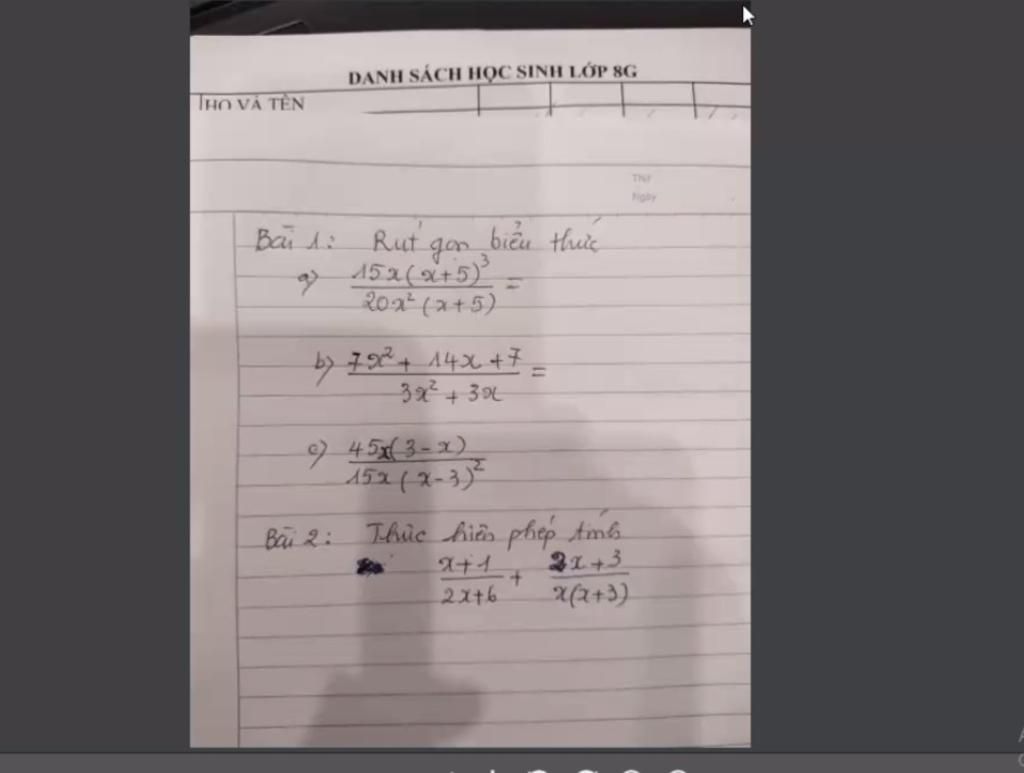 DANH SÁCH HỌC SINH LỚP 8G
HỌ VÀ TÊN
Thứ
Ngày
Bài 1: Rút gọn biểu thức
a) 15x(x+5)³ / 20x²(x+5) =
b) 7x² + 14x + 7 / 3x² + 3x =
c) 45x(3-x) / 15x(x-3)²
Bài 2: Thực hiện phép tính
x+1 / 2x+6 + 2x+3 / x(x+3)